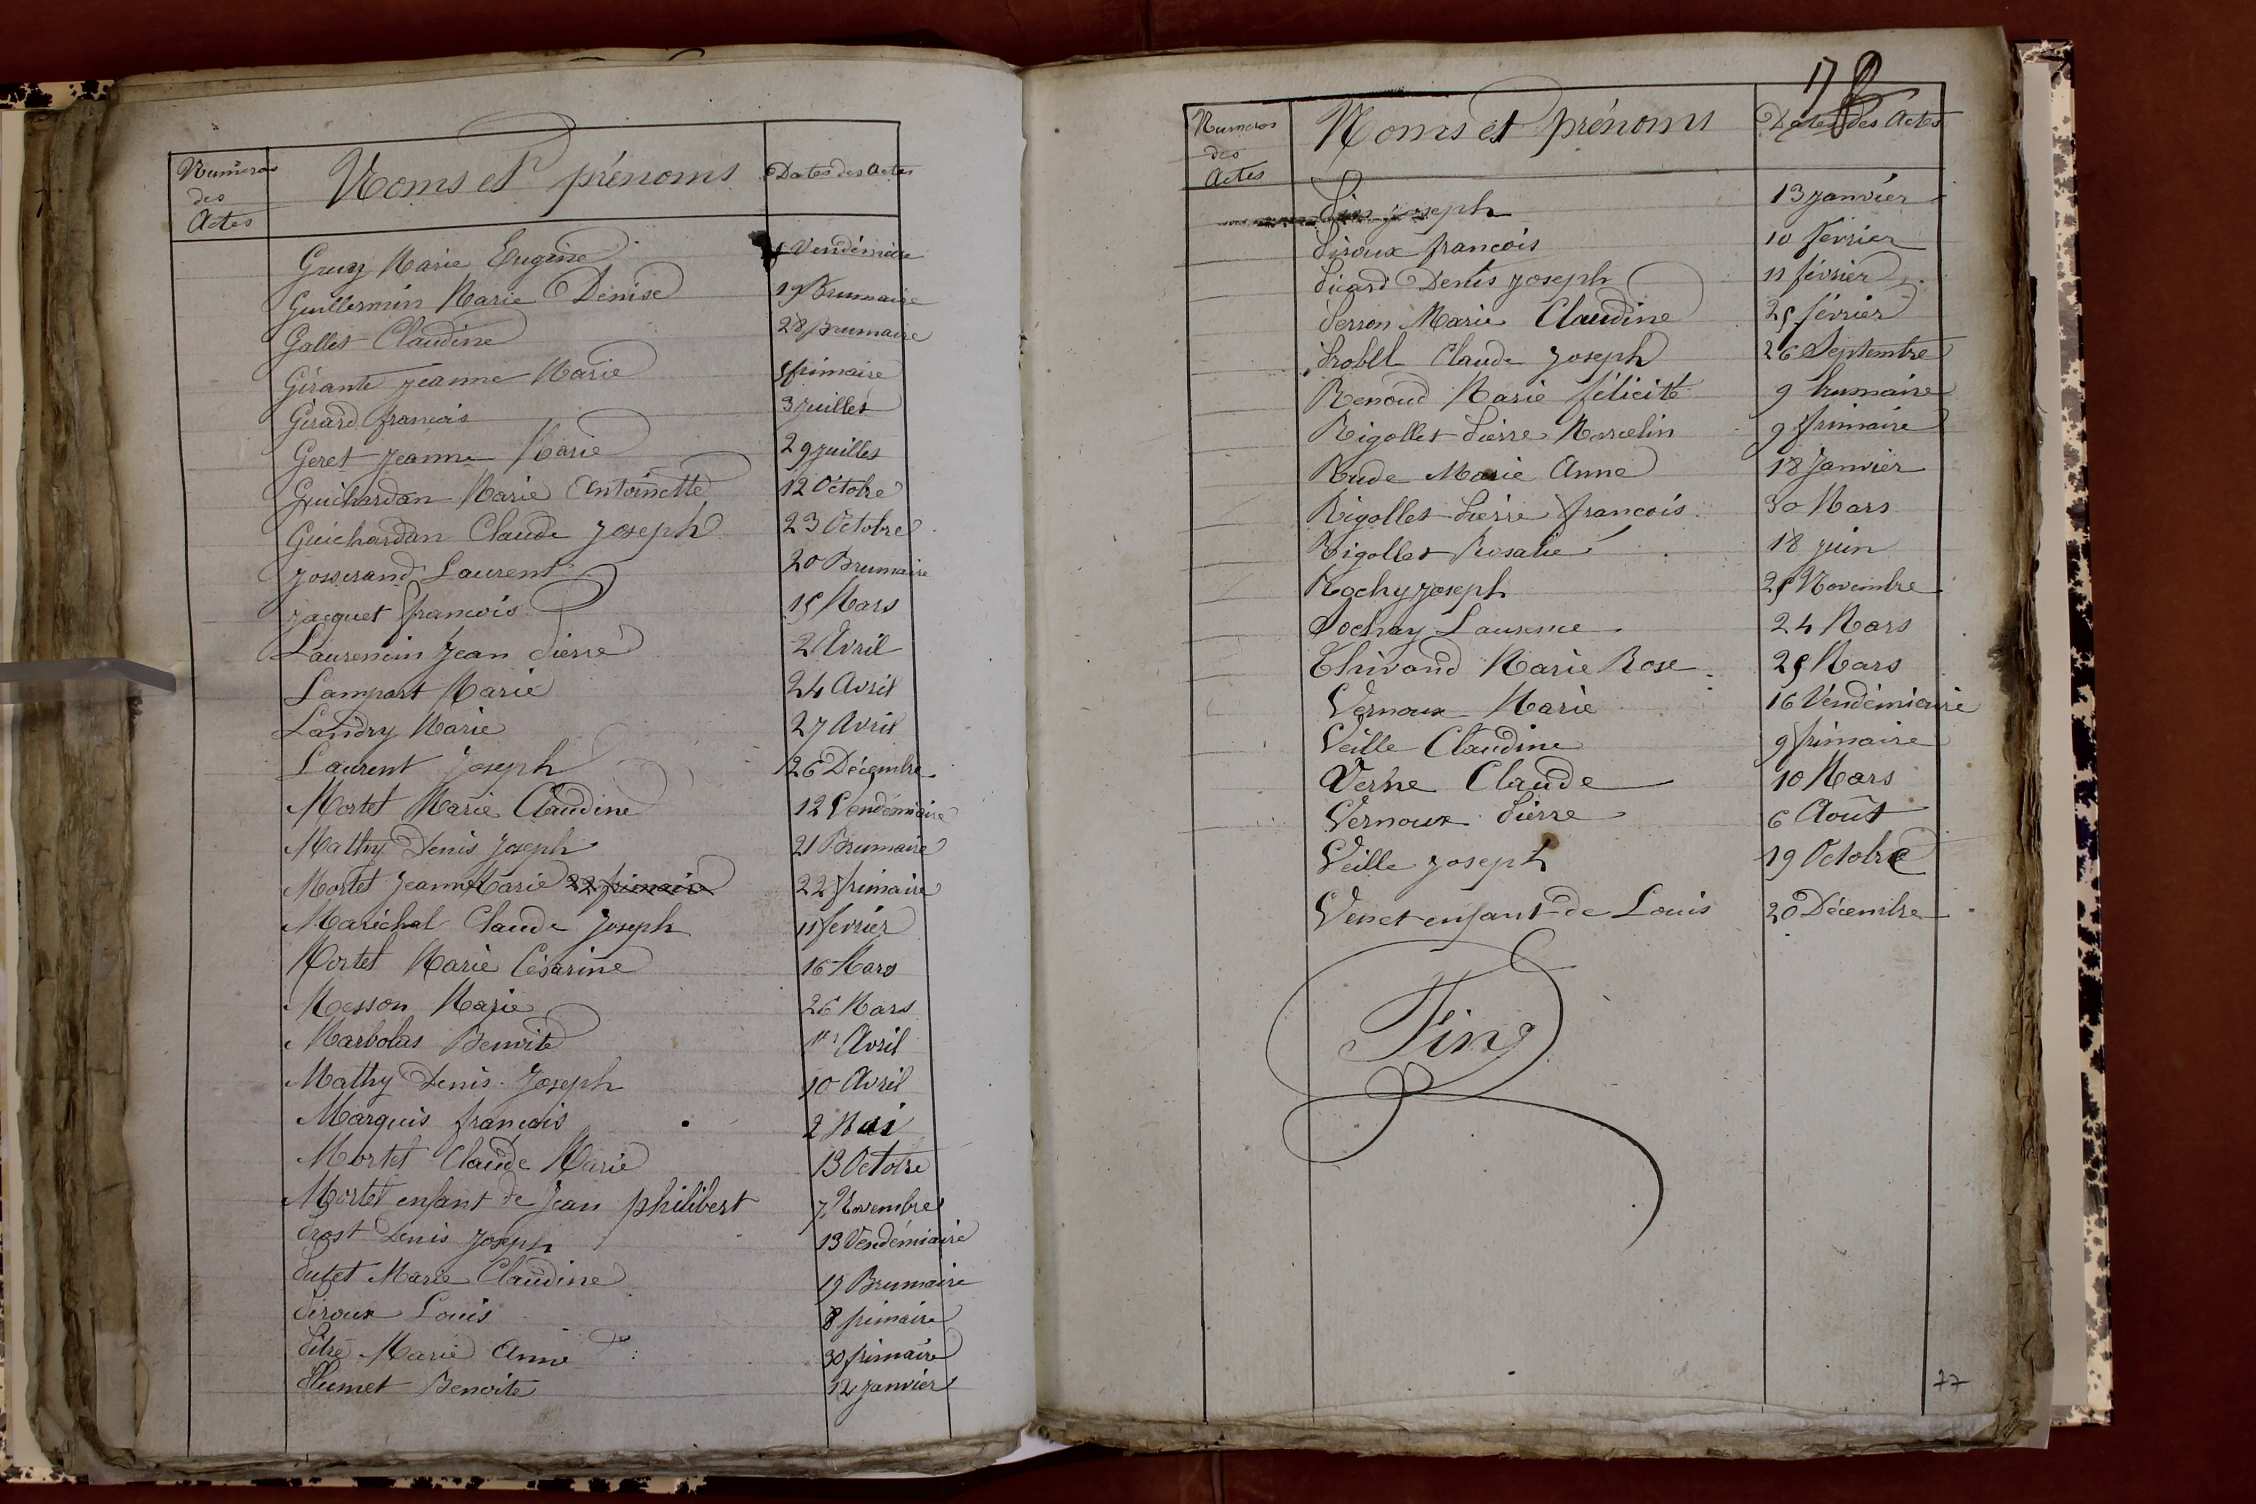 Numéros des Actes Noms et prénoms Dates des Actes
Marie Eugénie Vendémiaire
Guillermin Marie Denise 19 Brumaire
Gallet Claudine 28 Brumaire
Gérante jeanne Marie 5 frimaire
Gérard francois 3 juillet
Geret jeanne Marie 29 juillet
Guichardan Marie Antoinette 12 Octobre
Guichardan Claude joseph 23 Octobre
josserand Laurent 20 Brumaire
jacquet francois 15 Mars
Laurencin jean Pierre 2 Avril
Lampart Marie 24 Avril
Landry Marie 27 Avril
Laurent joseph 26 Décembre
Mortet Marie Claudine 12 Vendémiaire
Mathy Denis joseph 21 Brumaire
Mortet jeanne Marie 22 frimaire 22 frimaire
Maréchal Claude joseph 11 fevrier
Mortet Marie Césarine 16 Mars
Messon Marie 26 Mars
Marbolas Benoite 1er Avril
Mathy Denis Joseph 10 Avril
Marquis francois 2 Mai
Mortet Claude Marie 13 Octobre
Mortet enfant de Jean philibert 7 Novembre
Prost Denis joseph 13 Vendémiaire
Putet Marie Claudine 19 Brumaire
Piroux Louis 8 frimaire
Marie Anne 30 frimaire
Plumet Benoite 12 janvier
17
Numeros des Actes Noms et prénoms Dates des Actes
joseph 13 janvier
Piroux francois 10 fevrier
Picard Denis joseph 11 février
Perron Marie Claudine 25 février
Probel Claude joseph 26 Septembre
Renoud Marie félicité 9 brumaire
Rigollet Pierre Marcelin 9 frimaire
Rude Marie Anne 18 janvier
Rigollet Pierre francois 30 Mars
Rigollet Rosalie 18 juin
Rochy joseph 25 Novembre
Sochay Laurence 24 Mars
Thivand Marie Rose 25 Mars
Vernoux Marie 16 Vendémiaire
Veille Claudine 9 frimaire
Verne Claude 10 Mars
Vernoux Pierre 6 Août
Veille joseph 19 Octobre
Venet enfant de Louis 20 Décembre
Fin
77